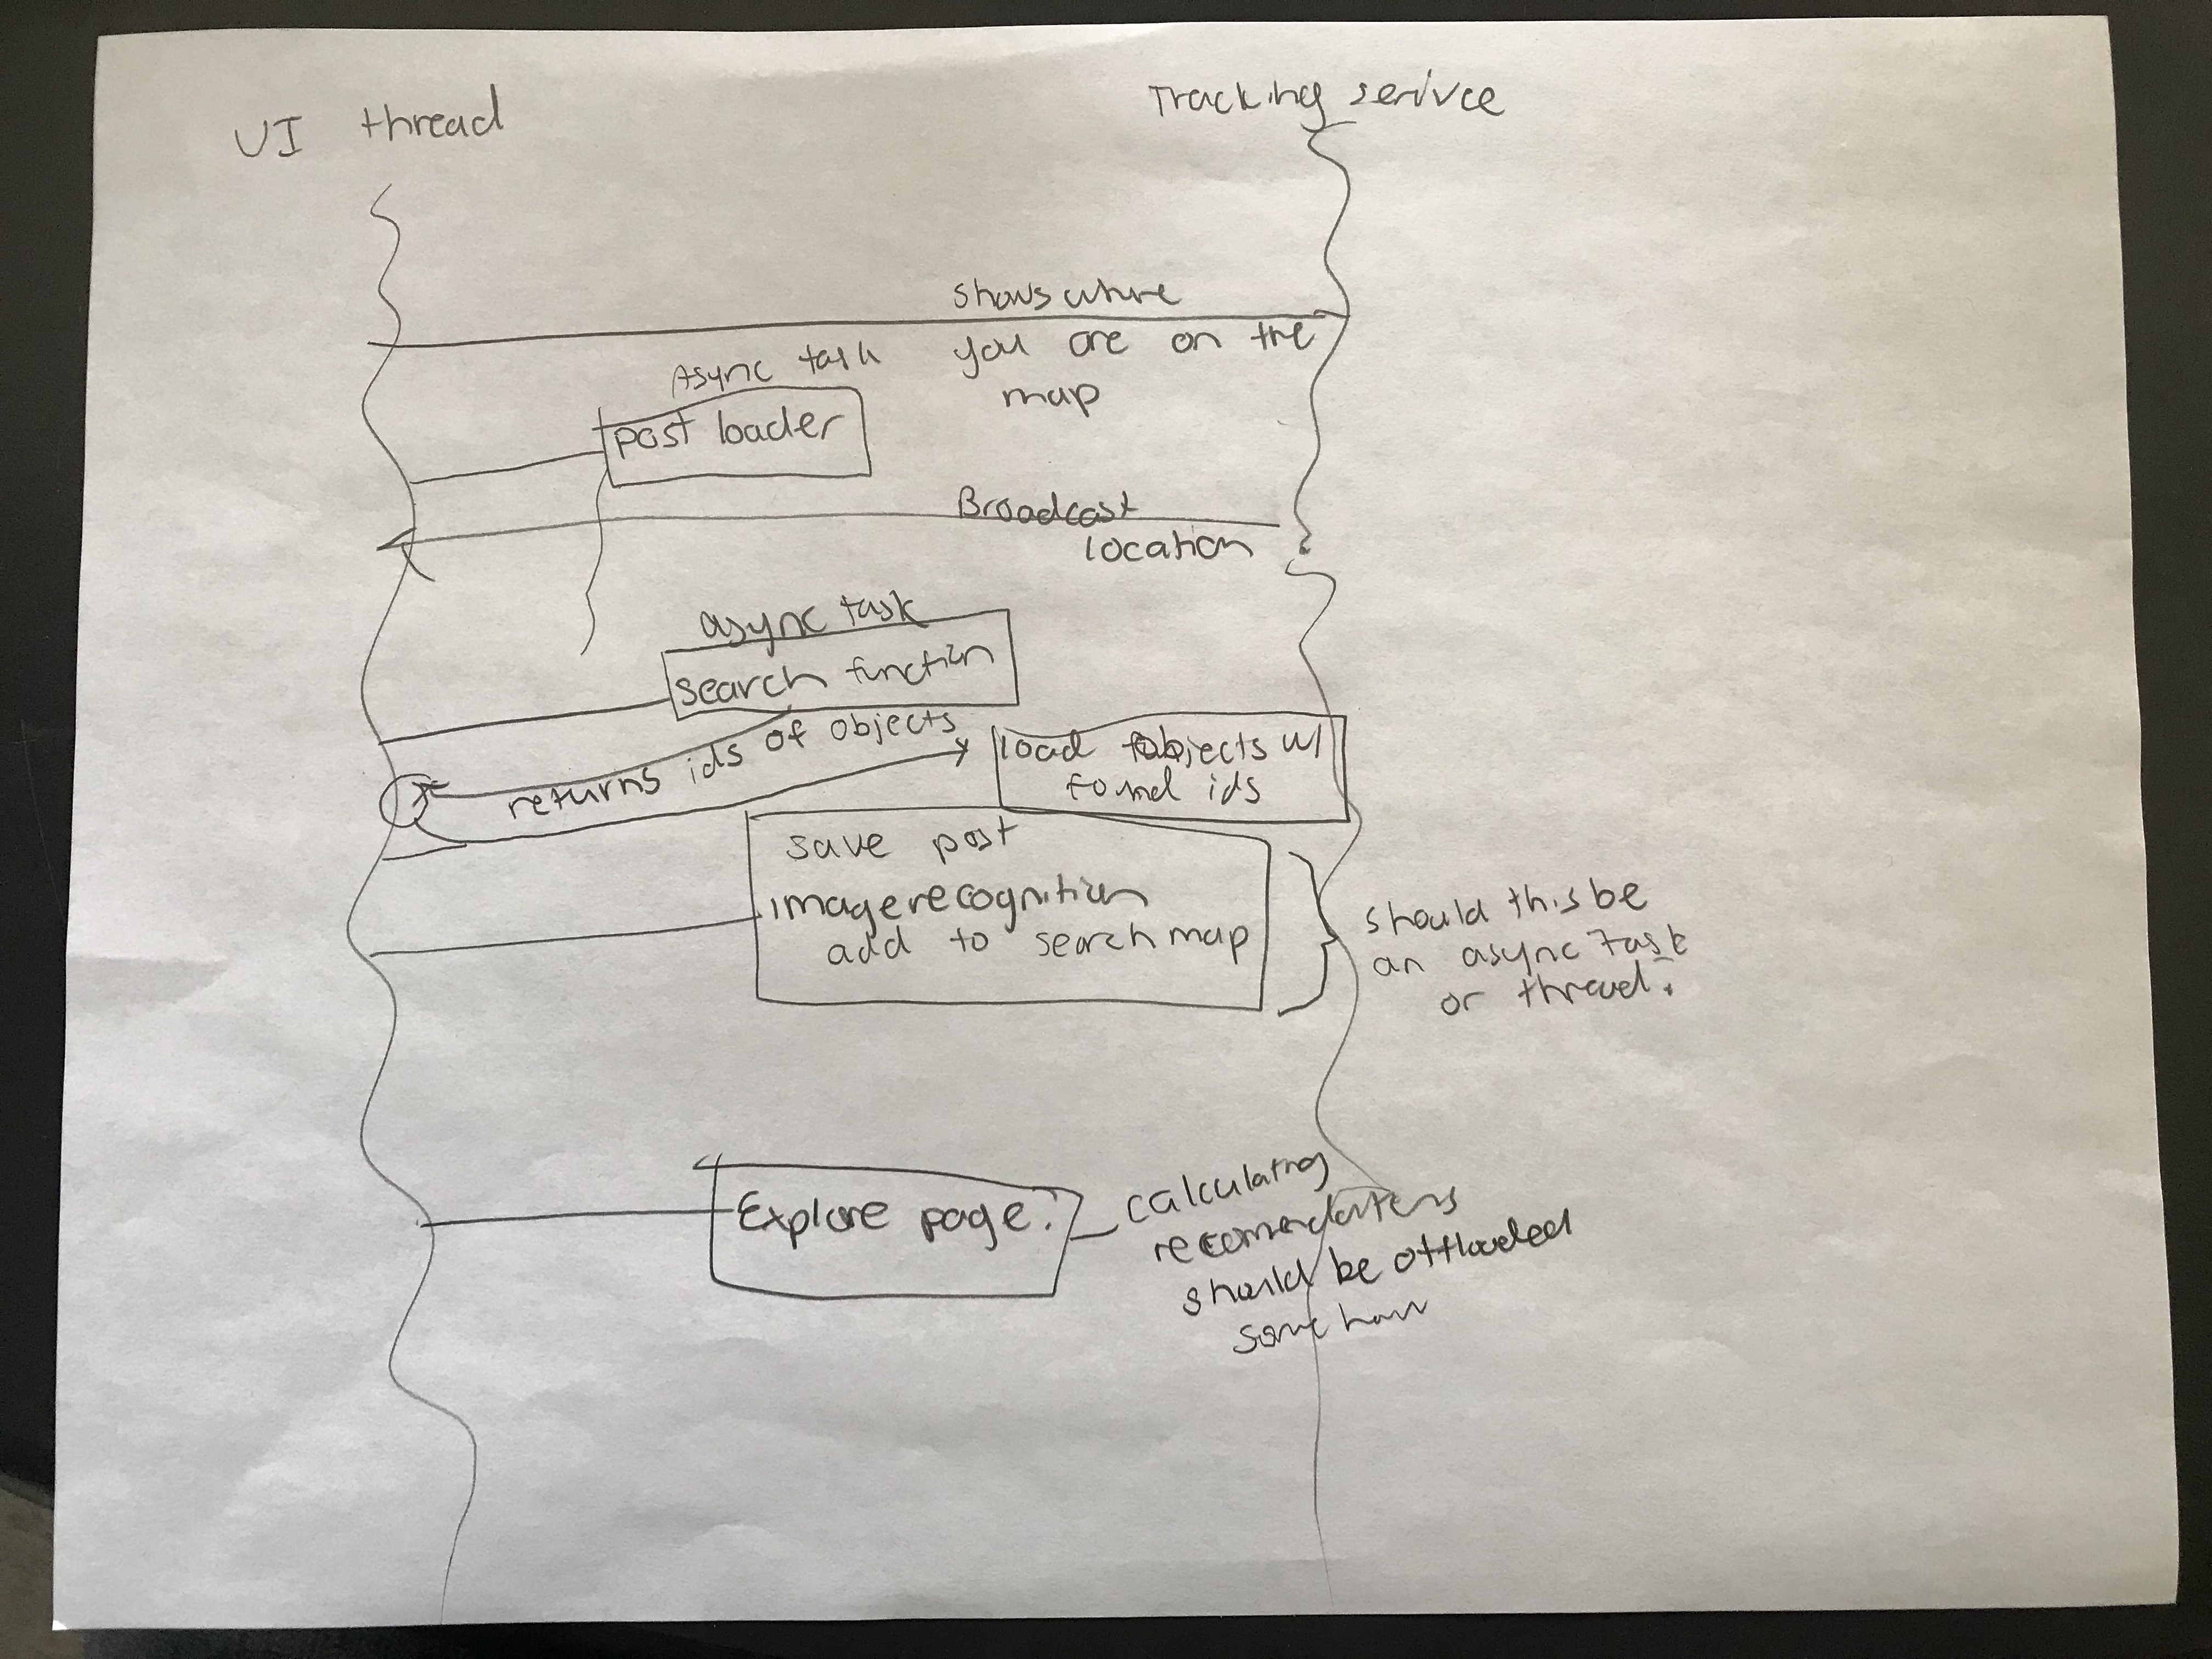 UI thread
Tracking serivce
shows where
you are on the
map
Async task
post loader
Broadcast
location
async task
search function
returns ids of objects
load objects w/
found ids
save post
image recognition
add to search map
should this be
an async task
or thread.
Explore page?
calculating
should be offloaded
some how